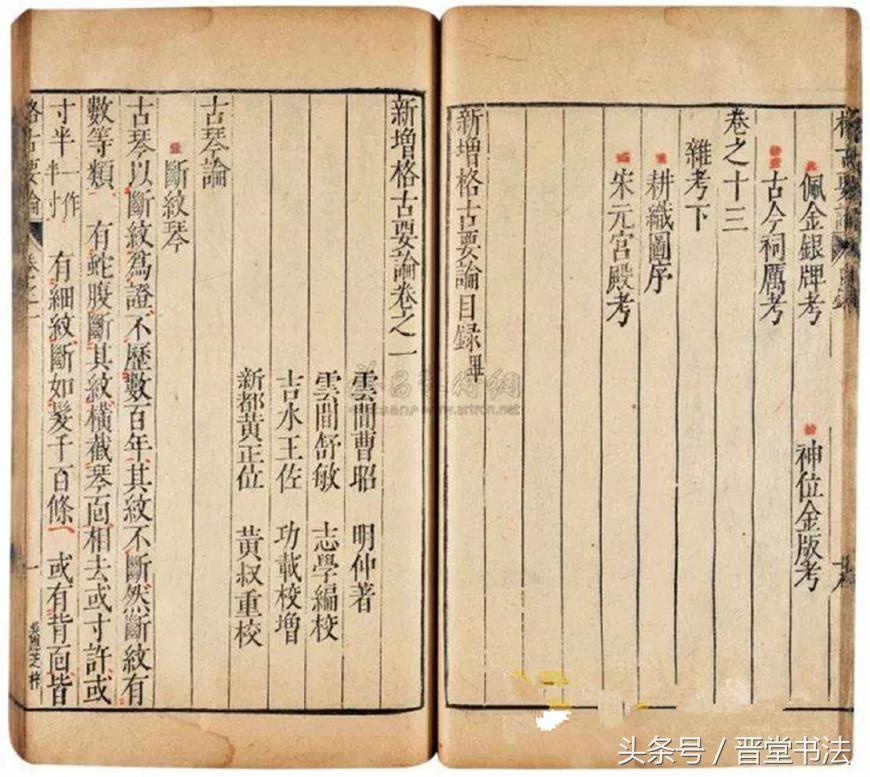 佩金銀牌考 神位金版考
古今祠厲考
卷之十三
雜考下
耕織圖序
宋元宮殿考
新增格古要論目録畢
新增格古要論卷之一
雲間曹昭 明仲著
雲間舒敏 志學編校
吉水王佐 功載校增
新都黃正位 黃叔重校
古琴論
斷紋琴
古琴以斷紋爲證不歷數百年其紋不斷然斷紋有
數等類 有蛇腹斷其紋橫截琴面相去或寸許或
寸半一作半寸 有細紋斷如髮千百條 或有背面皆
格古要論 卷之一 一
www.artron.net
头条号 / 晋堂书法